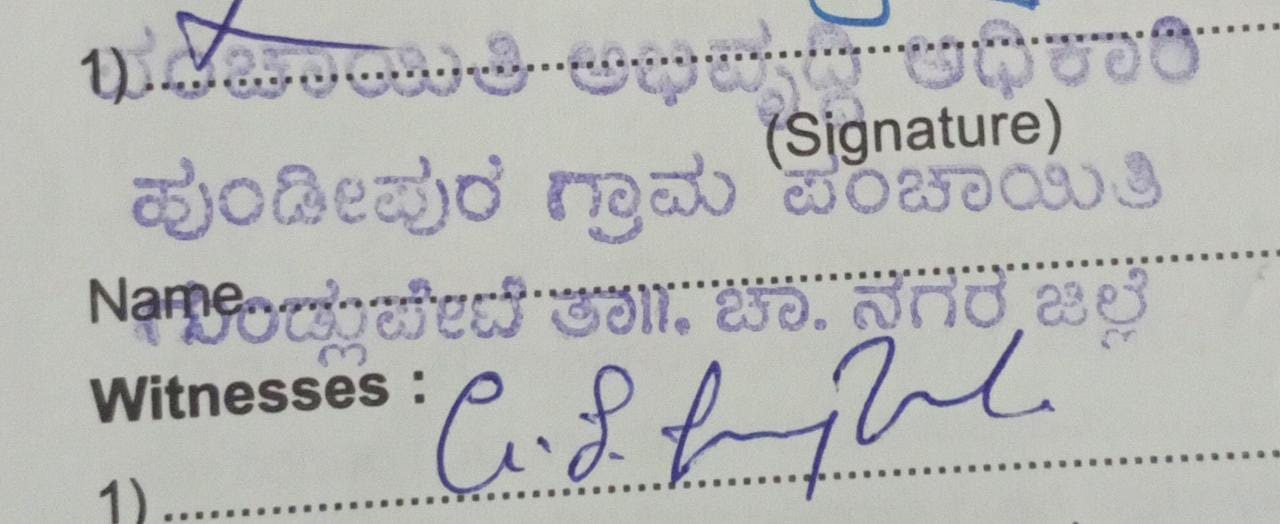 1) ಪಂಚಾಯಿತಿ ಅಭಿವೃದ್ಧಿ ಅಧಿಕಾರಿ
(Signature)
ಹುಂಡೀಪುರ ಗ್ರಾಮ ಪಂಚಾಯಿತಿ
Name
ಗುಂಡ್ಲುಪೇಟೆ ತಾ||. ಚಾ. ನಗರ ಜಿಲ್ಲೆ
Witnesses :
1)